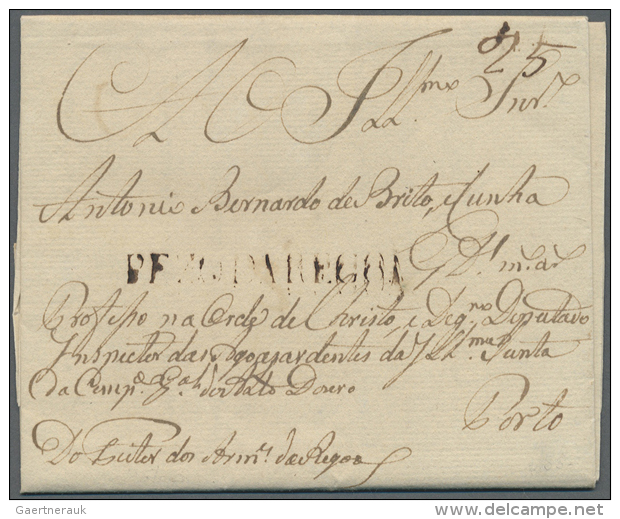 25
A O Ill.mo Snr.
Antonio Bernardo de Brito, e Cunha
PEZO DA REGOA
G.de m.a a.s
Professo na Ordẽ de Christo, e Deg.no Deputado
Inspector das Agoasardentes da Ill.ma Junta
da Comp.a G.al do Alto Douro
Porto
Do Feitor dos Arm.s da Regoa
Gaertnerauk
www.delcampe.net